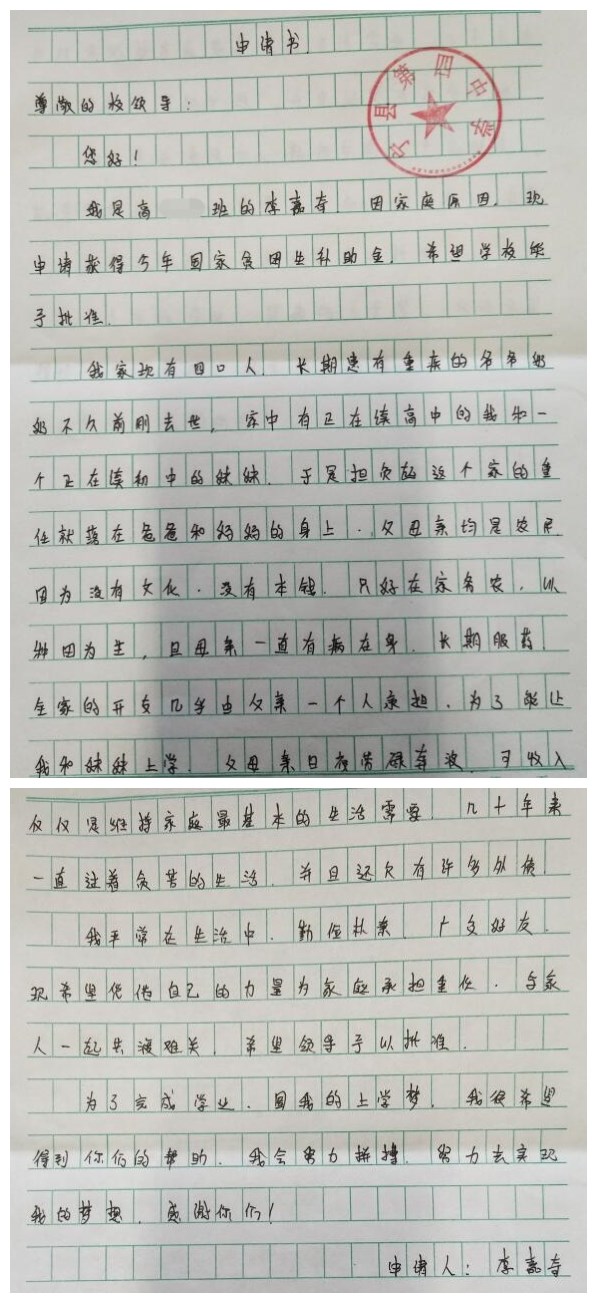 申请书
宁县第四中学
尊敬的校领导：
您好！
我是高 班的李嘉奇．因家庭原因．现
申请获得今年国家贫困生补助金．希望学校能
予批准．
我家现有四口人．长期患有重疾的爷爷奶
奶不久前刚去世，家中有正在读高中的我和一
个正在读初中的妹妹．于是担负起这个家的重
任就落在爸爸和妈妈的身上．父母亲均是农民
因为没有文化．没有本钱．只好在家务农．以
种田为生，且母亲一直有病在身．长期服药．
全家的开支几乎由父亲一个人承担．为了能让
我和妹妹上学．父母亲日夜劳碌奔波．可收入
仅仅是维持家庭最基本的生活需要．几十年来
一直过着贫苦的生活．并且还欠有许多外债．
我平常在生活中．勤俭朴素．广交好友．
现希望凭借自己的力量为家庭承担重任．与家
人一起共渡难关．希望领导予以批准．
为了完成学业．圆我的上学梦．我很希望
得到你们的帮助．我会努力拼搏．努力去实现
我的梦想．感谢你们！
申请人：李嘉奇